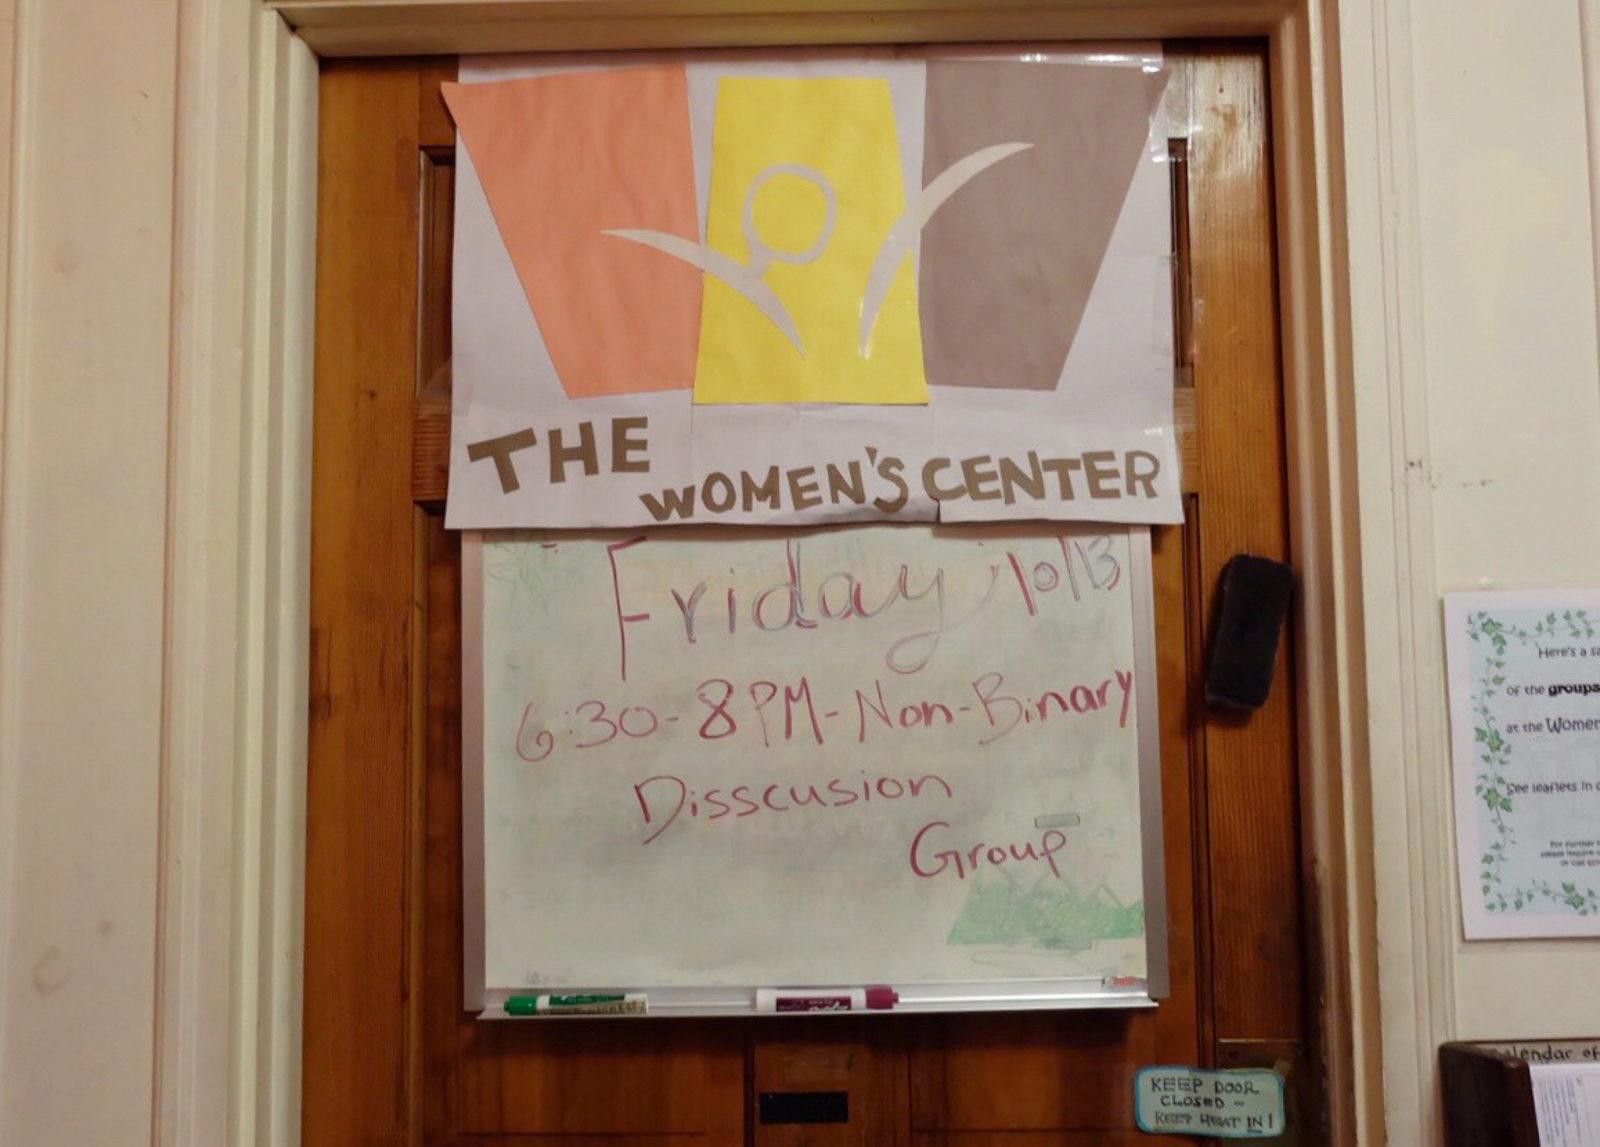 THE
WOMEN'S CENTER
Friday 10/13
6:30-8PM-Non-Binary
Disscusion
Group
Here's a
of the groups
at the
See leaflets in
KEEP DOOR
CLOSED ~
KEEP HEAT IN!